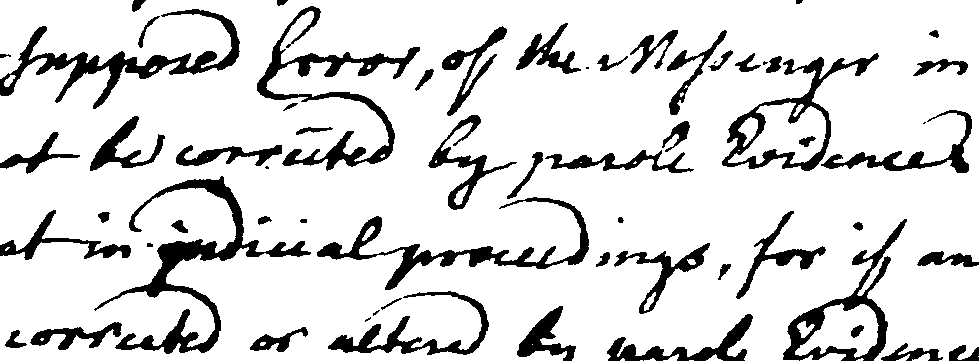 supposed Error, of the Messenger in
ot be corrected by parole Evidence
at in judicial proceedings, for if an
corrected or altered by parole Evidence